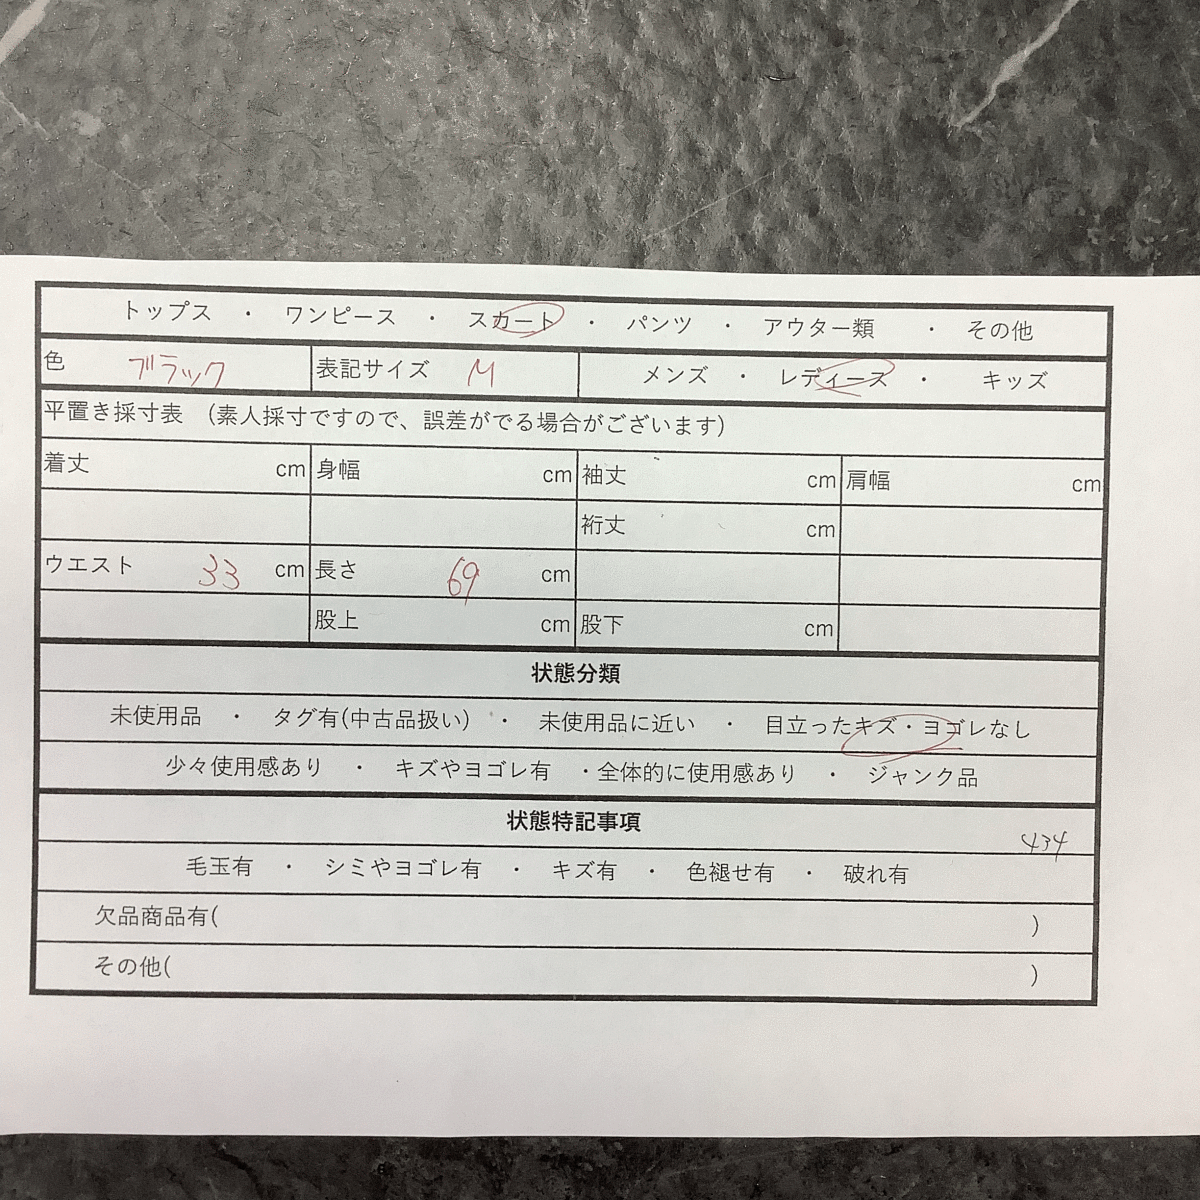 トップス ・ ワンピース ・ スカート ・ パンツ ・ アウター類 ・ その他
色 ブラック 表記サイズ M メンズ ・ レディース ・ キッズ
平置き採寸表 (素人採寸ですので、誤差がでる場合がございます)
着丈 cm 身幅 cm 袖丈 cm 肩幅 cm
裄丈 cm
ウエスト 33 cm 長さ 69 cm
股上 cm 股下 cm
状態分類
未使用品 ・ タグ有(中古品扱い) ・ 未使用品に近い ・ 目立ったキズ・ヨゴレなし
少々使用感あり ・ キズやヨゴレ有 ・全体的に使用感あり ・ ジャンク品
状態特記事項
434
毛玉有 ・ シミやヨゴレ有 ・ キズ有 ・ 色褪せ有 ・ 破れ有
欠品商品有( )
その他( )